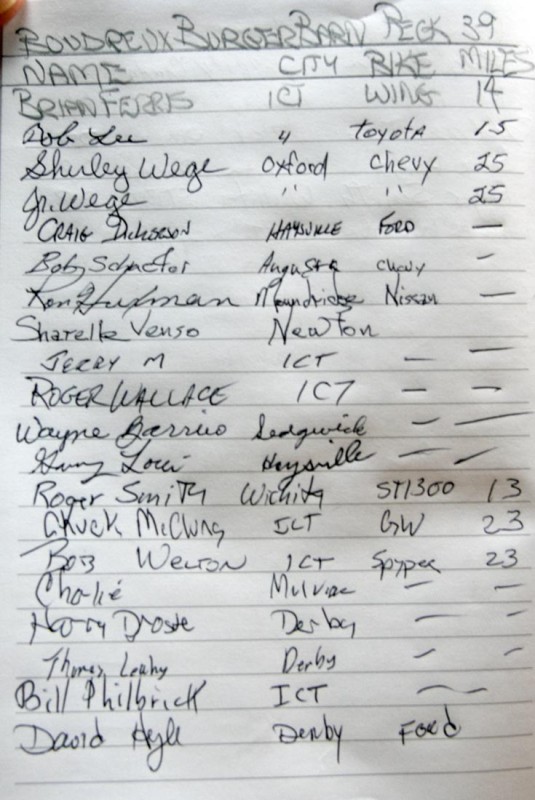 BOUDREUX BURGER BARN PECK 39
NAME CITY BIKE MILES
BRIAN FERRIS ICT WING 14
Bob Lee " TOYOTA 15
Shirley Wege Oxford Chevy 25
Jr. Wege " " 25
CRAIG DICKERSON HAYSVILLE FORD —
Bob Augusta Chevy -
Ken Moundridge Nissan —
Sharelle Venso Newton
JERRY M ICT — —
ROGER WALLACE ICT — —
Wayne Sedgwick — —
Haysville — —
Roger Smith Wichita ST1300 13
Chuck McClung ICT GW 23
BOB WELTON ICT Spyder 23
Charlie Mulvane — —
Harry Droste Derby — —
Thomas Leahy Derby — —
Bill Philbrick ICT — —
David Derby Ford